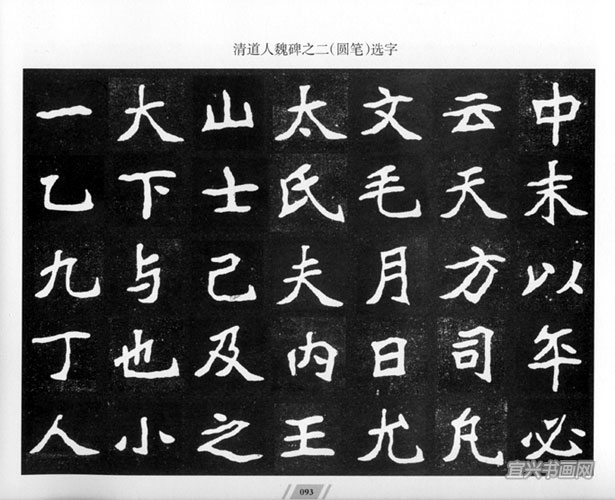 清道人魏碑之二（圆笔）选字
一乙九丁人
大下与也小
山士己及之
太氏夫内王
文毛月日尤
云天方司凡
中末以年必
宜兴书画网
093